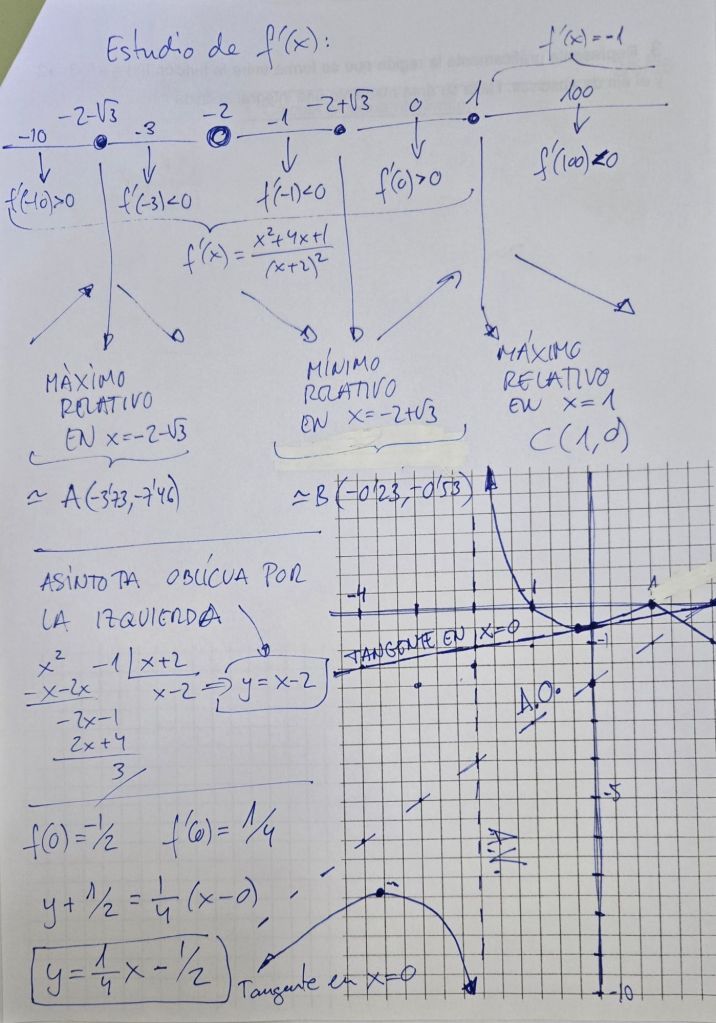 Estudio de f'(x):
f'(x)=-1
-10 -2-√3 -3 -2 -1 -2+√3 0 1 100
f'(-10)>0 f'(-3)<0 f'(-1)<0 f'(0)>0 f'(100)<0
f'(x) = (x²+4x+1)/(x+2)²
MÁXIMO
RELATIVO
EN x=-2-√3
≃ A(-3'73,-7'46)
MÍNIMO
RELATIVO
EN x=-2+√3
≃B(-0'23,-0'53)
MÁXIMO
RELATIVO
EN x=1
C(1,0)
ASÍNTOTA OBLÍCUA POR
LA IZQUIERDA
x² -1 | x+2
-x-2x x-2 ⇒ y=x-2
-2x-1
2x+4
3
f(0)=-1/2 f'(0)=1/4
y+1/2 = 1/4 (x-0)
y=1/4x-1/2
Tangente en x=0
-4 -1 1
TANGENTE EN x=0
-1
A.O.
-5
A.V.
-10